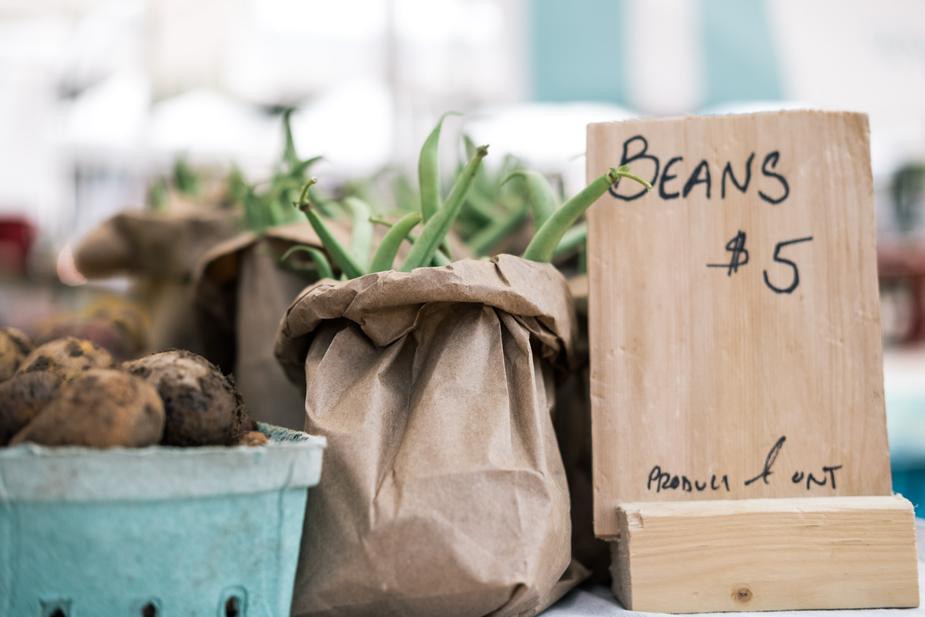 BEANS
$5
PRODUCT ONT